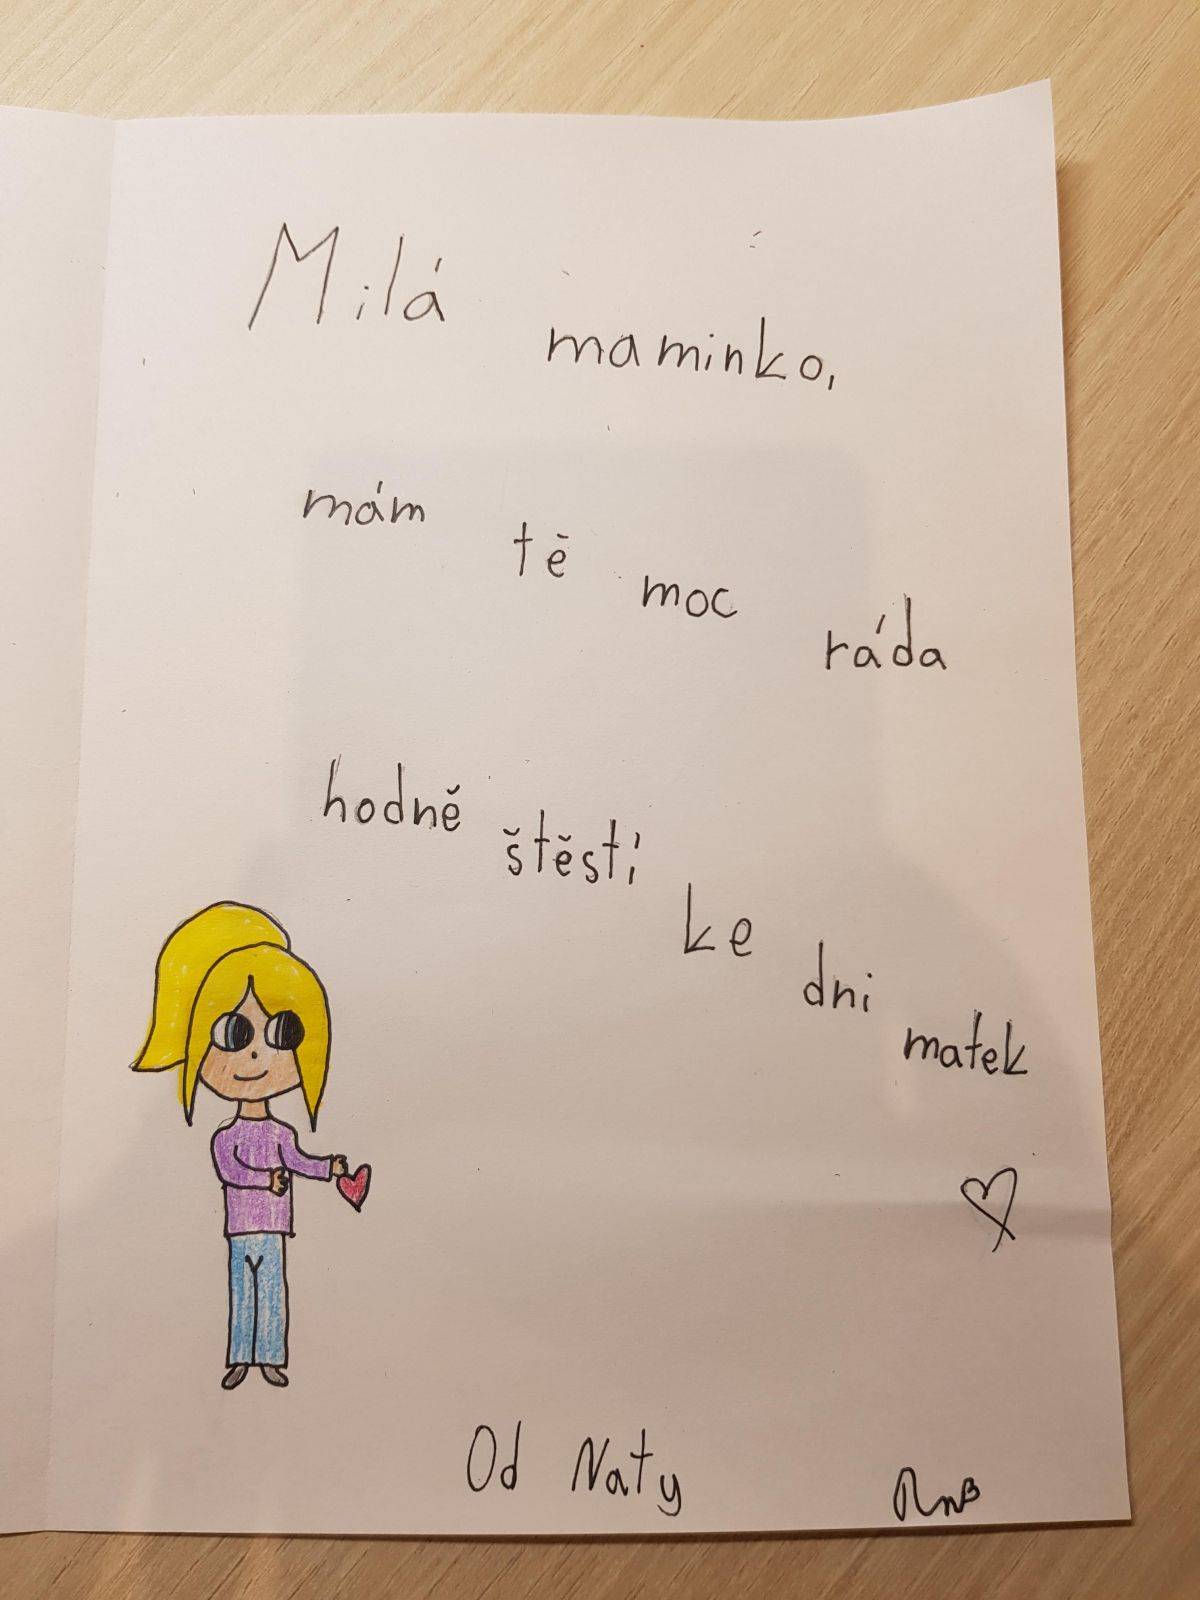 Milá maminko,
mám tě moc ráda
hodně štěstí ke dni matek
Od Naty